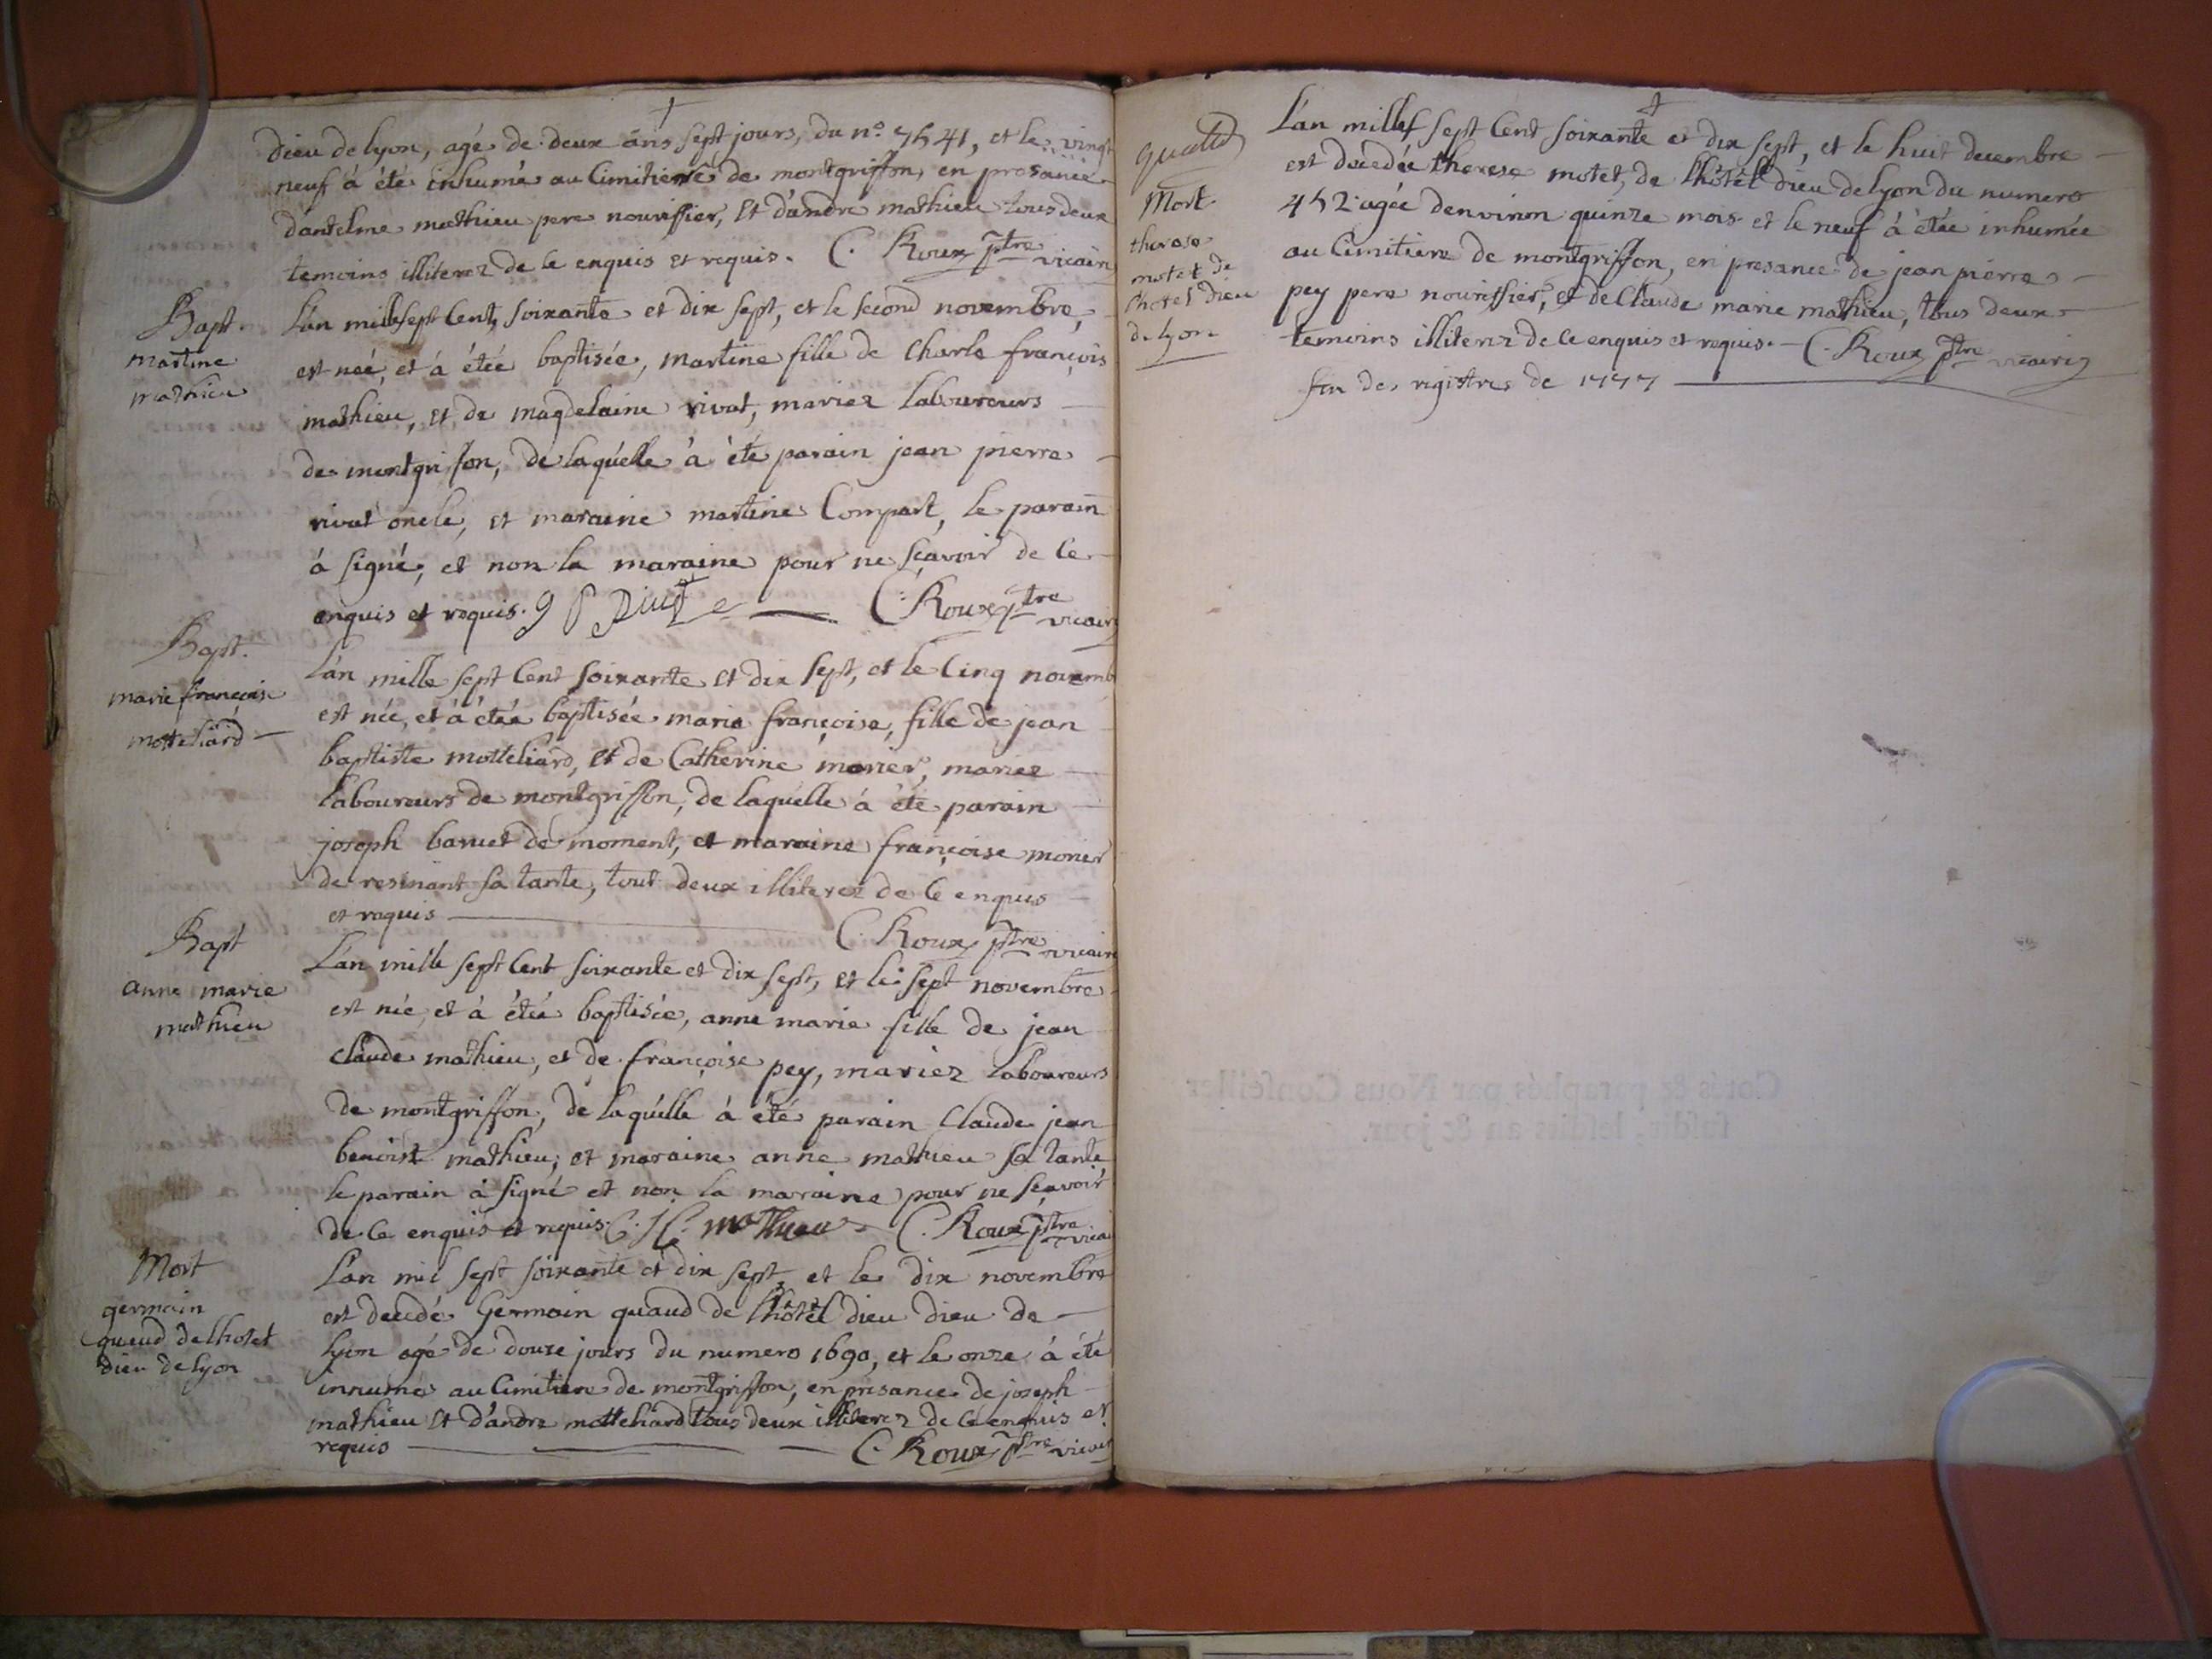 dieu de lyon, agé de deux ans sept jours, du n.º 7541, et le vingt
neuf à été inhumé au Cimitiere de montgriffon, en presance
d'antelme mathieu pere nourissier, et d'andre mathieu tous deux
temoins illiterez de ce enquis et requis. C. Roux ptre vicaire
Bapt.
martine
mathieu
L'an mille sept Cent, soixante et dix sept, et le second novembre,
est née, et à étée baptisée, martine fille de Charle françois
mathieu, et de magdelaine rivat, mariez laboureurs
de montgriffon, de laquélle à été parain jean pierre
rivat oncle, et maraine martine Compart, le parain
à signé, et non la maraine pour ne sçavoir de Ce
enquis et requis. C. Roux ptre vicair
Bapt.
marie françoise
motteliard
L'an mille sept Cent soixante et dix sept, et le Cinq novemb
est née, et à étée baptisée marie françoise, fille de jean
baptiste motteliard, et de Catherine monier, mariez
laboureurs de montgriffon, de laquélle à été parain
joseph baruet de moment, et maraine françoise monier
de resinant sa tante, tout deux illiterez de Ce enquis
et requis C. Roux ptre vicaire
Bapt
anne marie
mathieu
L'an mille sept Cent soixante et dix sept, et le sept novembre
est née, et à étée baptisée, anne marie fille de jean
claude mathieu, et de françoise pey, mariez laboureurs
de montgriffon, de laquélle à été parain Claude jean
benoist mathieu, et maraine anne mathieu sa tante
le parain à signé et non la maraine pour ne sçavoir
de Ce enquis et requis. mathieu C. Roux ptre vicai
Mort
germain
quaud de lhotel
dieu de lyon
L'an mil sept soixante et dix sept, et le dix novembre
est decedé Germain quaud de lhôtel dieu dieu de
lyon agé de douze jours du numero 1690, et le onze à été
innumé au Cimitiere de montgriffon, en presance de joseph
mathieu et d'andre motteliard tous deux illiterez de Ce enquis et
requis C. Roux ptre vicair
Mort.
therese
motet de
lhotel dieu
de lyon
L'an mille sept Cent soixante et dix sept, et le huit decembre
est decedée therese motet, de lhôtél dieu de lyon du numero
452 agée denviron quinze mois et le neuf à étée inhumée
au Cimitiere de montgriffon, en presance de jean pierre
pey pere nourissier, et de Claude marie mathieu, tous deux
temoins illiterez de Ce enquis et requis. C. Roux ptre vicaire
fin des registres de 1777
Cotés & paraphés par Nous Conseiller
susdit, lesdits an & jour.